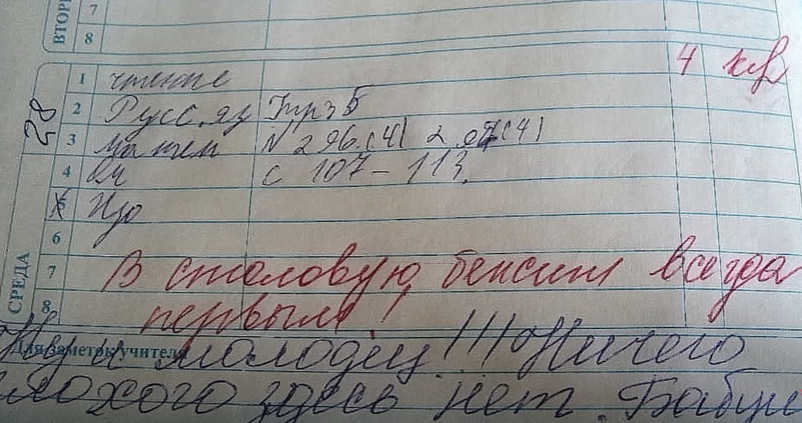 ВТОРН
7
8
СРЕДА
28
1 чтение 4
2 Русс. яз Упр 3 Б
3 матем N 296 (4) 297 (4)
4 с 107 - 113
5 Изо
6
7 В столовую бежит всегда
8 первым!
Для заметок учителя
Ну и молодец!!! Ничего
плохого здесь нет. Бабуш